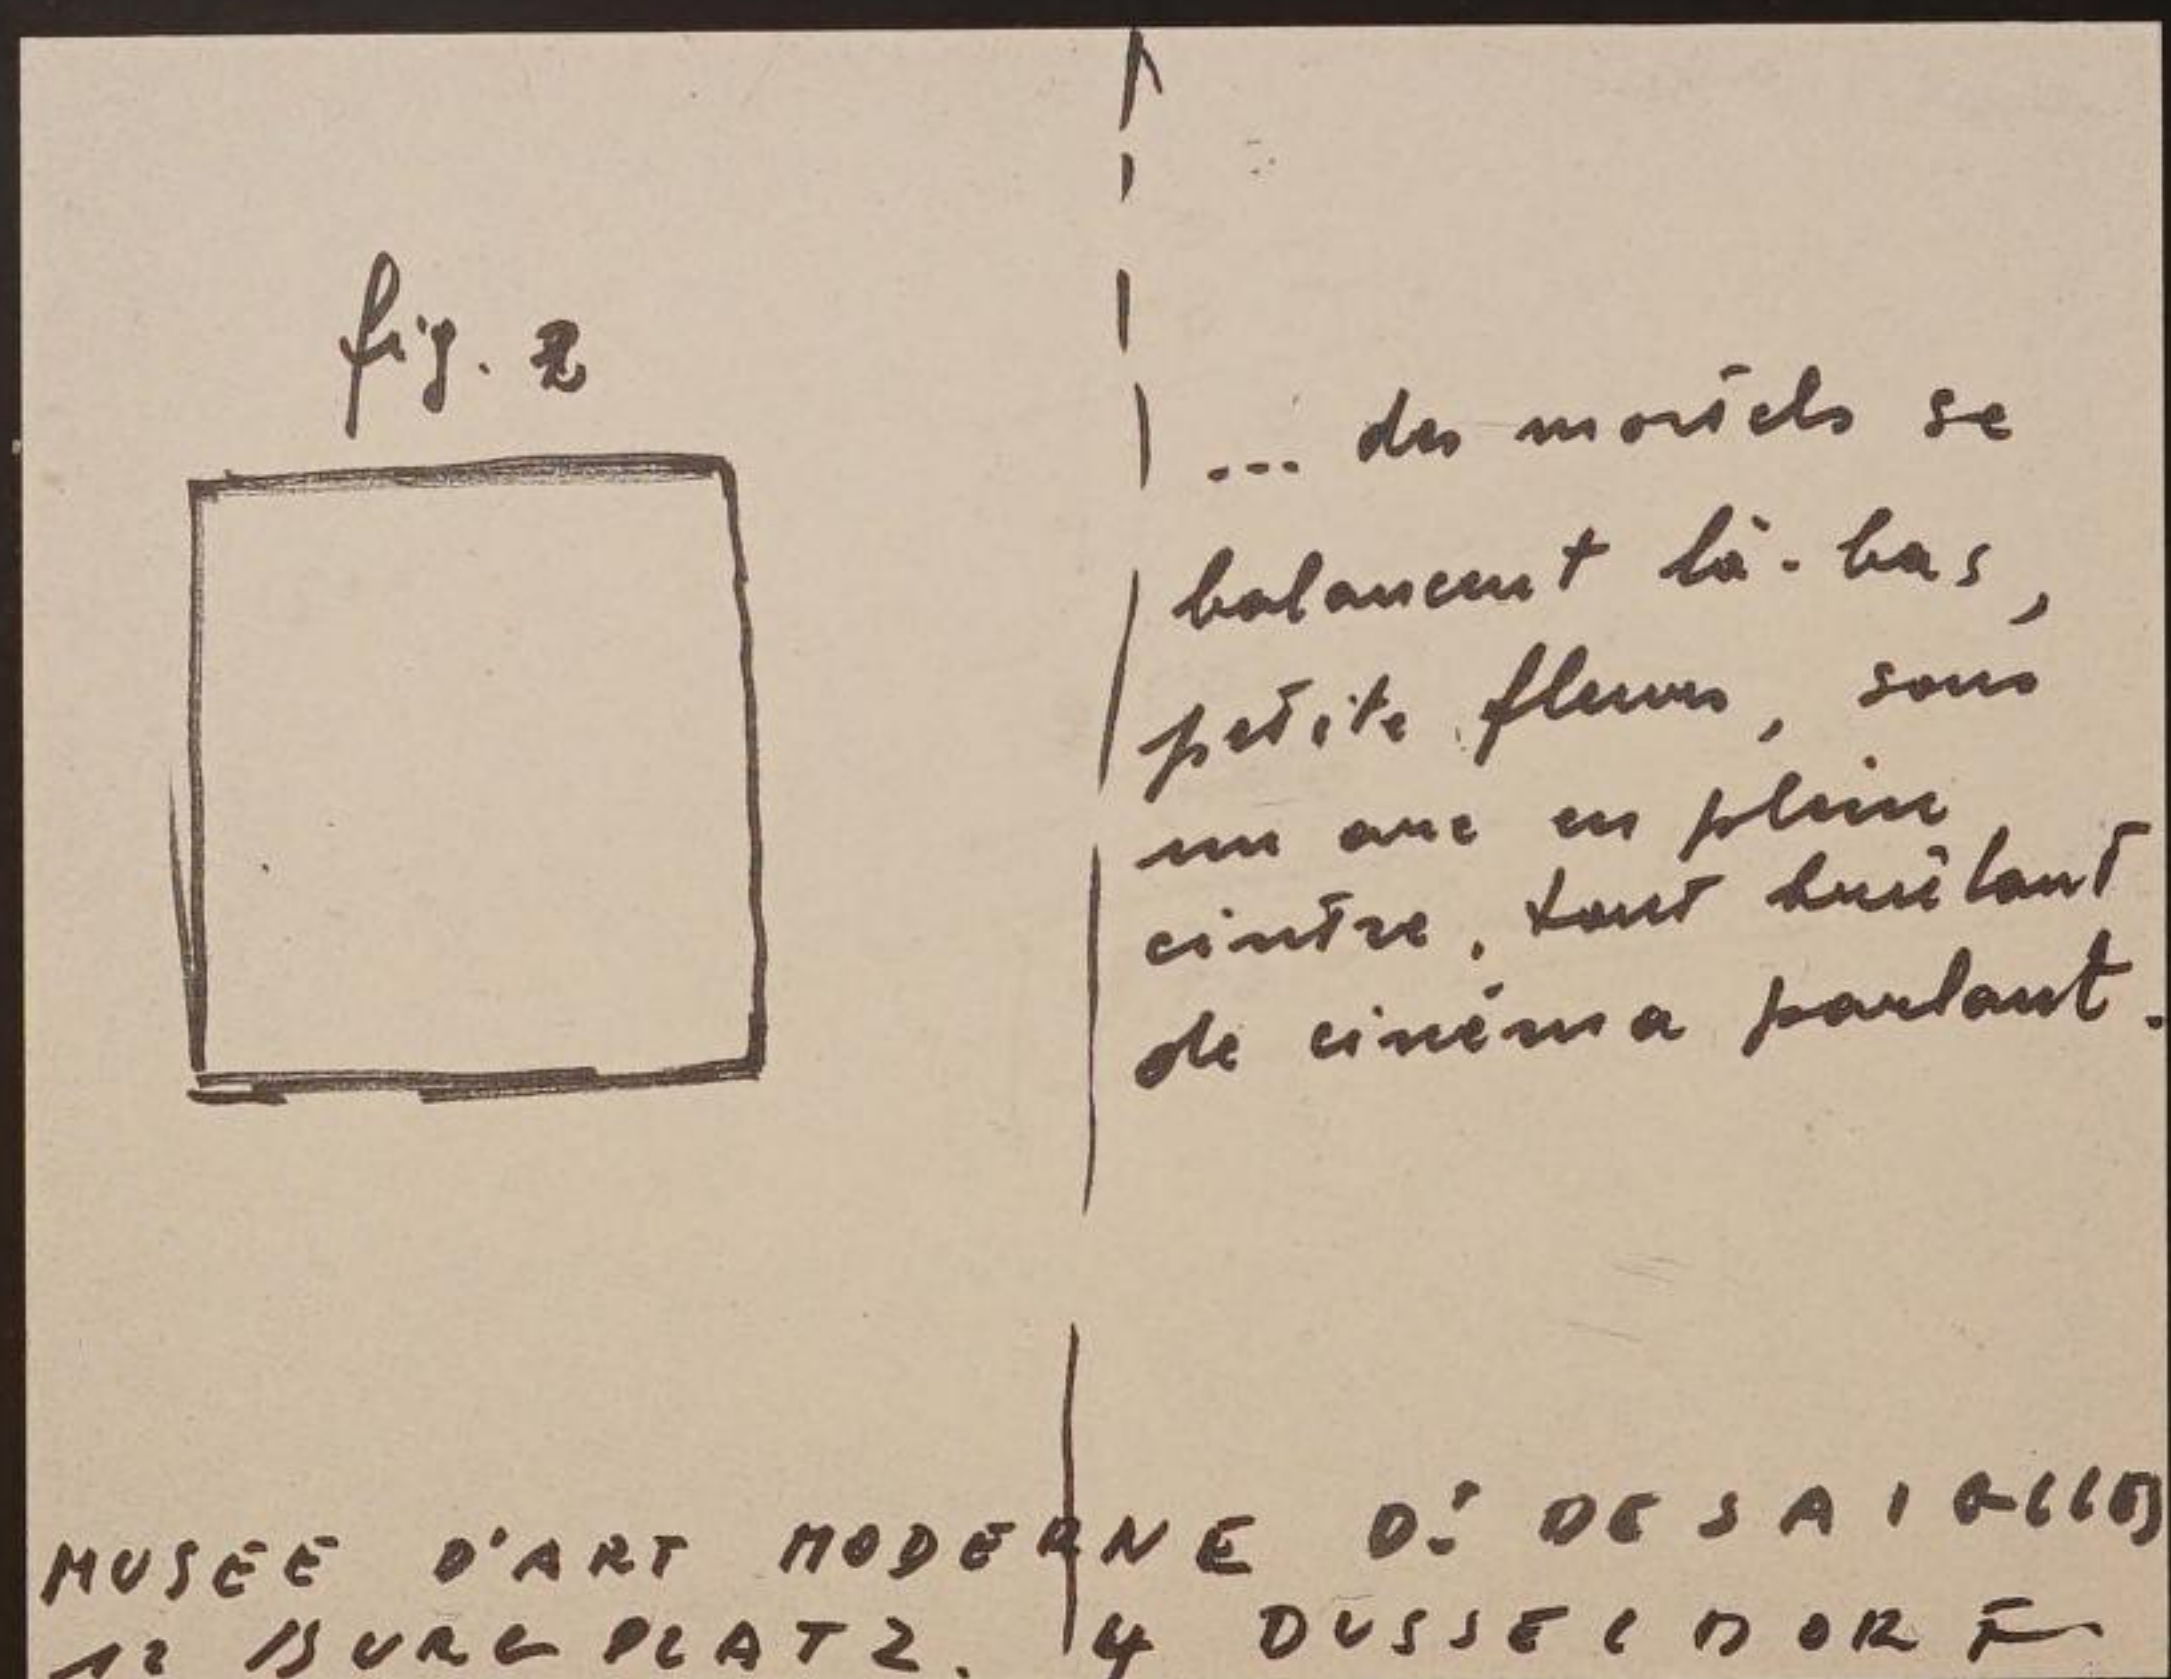 fig. 2
... des mortels se
balancent là-bas,
petite fleurs, sous
un arc en plein
cintre, tout brûlant
de cinéma parlant.
MUSEE D'ART MODERNE D: DES AIGLES
12 BURGPLATZ. 4 DUSSELDORF